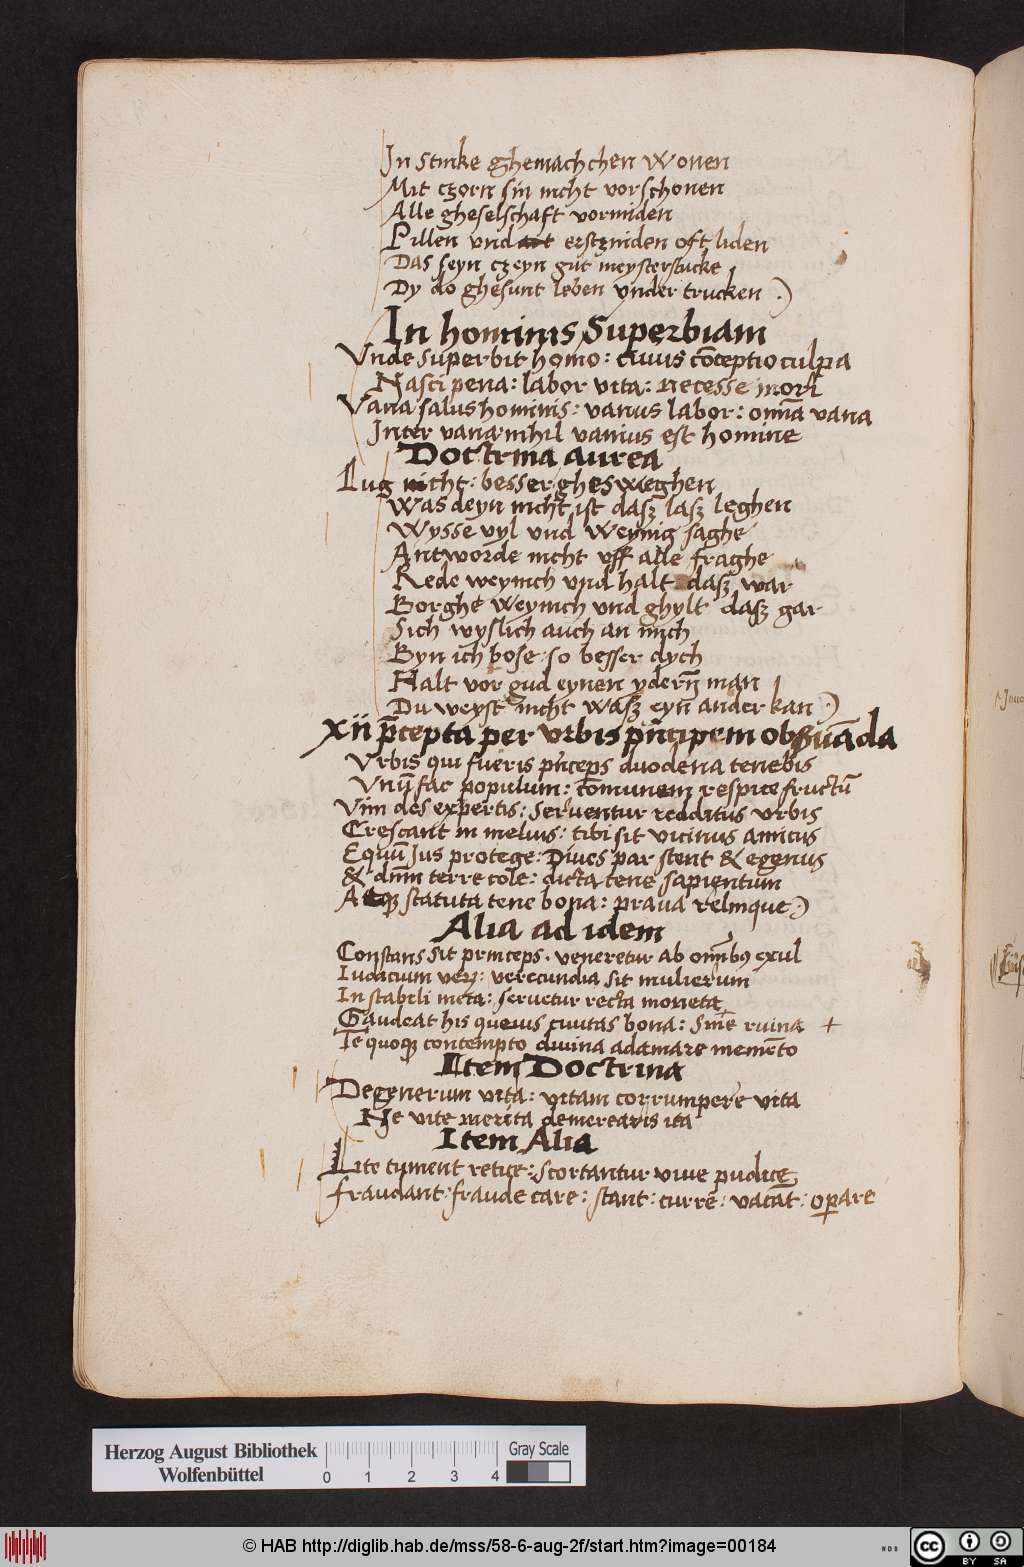 In stnke ghemachchen wonen
Mit czorn sin nicht vorschonen
Alle gheselschaft vormiden
Pillen und erstzniden oft liden
Das seyn czeyn gut meysterstucke
Dy do ghesunt leben vnder trucken :)
In hominis Superbiam
Vnde superbit homo: cuius cōceptio culpa
Nasci pena: labor vita: necesse mori
Vana salus hominis: vanus labor: omīa vana
Inter vana nihil vanius est homine
Doctrina aurea
Lug nicht: besser gheswegen
Was deyn nicht ist dasz lasz leghen
Wysse vyl und weynig saghe
Antworde nicht uff alle fraghe
Rede weynich und halt dasz war
Borghe weynich und ghylt dasz gar
Sich wyslich auch an mich
Byn ich bose so besser dych
Halt vor gud eynen yderñ man
Du weyst nicht wasz eyn ander kan :)
xii p̄cepta per vrbis pn̄cipem obs̄uāda
Vrbis qui fueris pn̄ceps duodena tenebis
Vnū fac populum: cōmunem respice fructū
Vim des expertis: serventur redditus vrbis
Crescant in melius: tibi sit vicinus amicus
Equū Jus protege: Diues par stent & egenus
& dn̄m terre cole: dicta tene sapientum
Atqꝫ statuta tene bona: praua relinque :)
Alia ad idem
Constans sit princeps. veneretur ab omībꝰ exul
Iudicium veꝝ: verecundia sit mulierum
In stabili meta: servetur recta moneta
Gaudeat his quevis civitas bona: sine ruina +
Te quoqꝫ contempto divina adamare memēto
Item Doctrina
Degenerum vita: vitam corrumpere vita
Ne vite merita demerearis ita
Item Alia
Lite tument retice: scortantur vive pudice
fraudant: fraude care: stant: currē: vacāt: operare
Herzog August Bibliothek
Wolfenbüttel
0 1 2 3 4
Gray Scale
© HAB http://diglib.hab.de/mss/58-6-aug-2f/start.htm?image=00184
cc BY SA